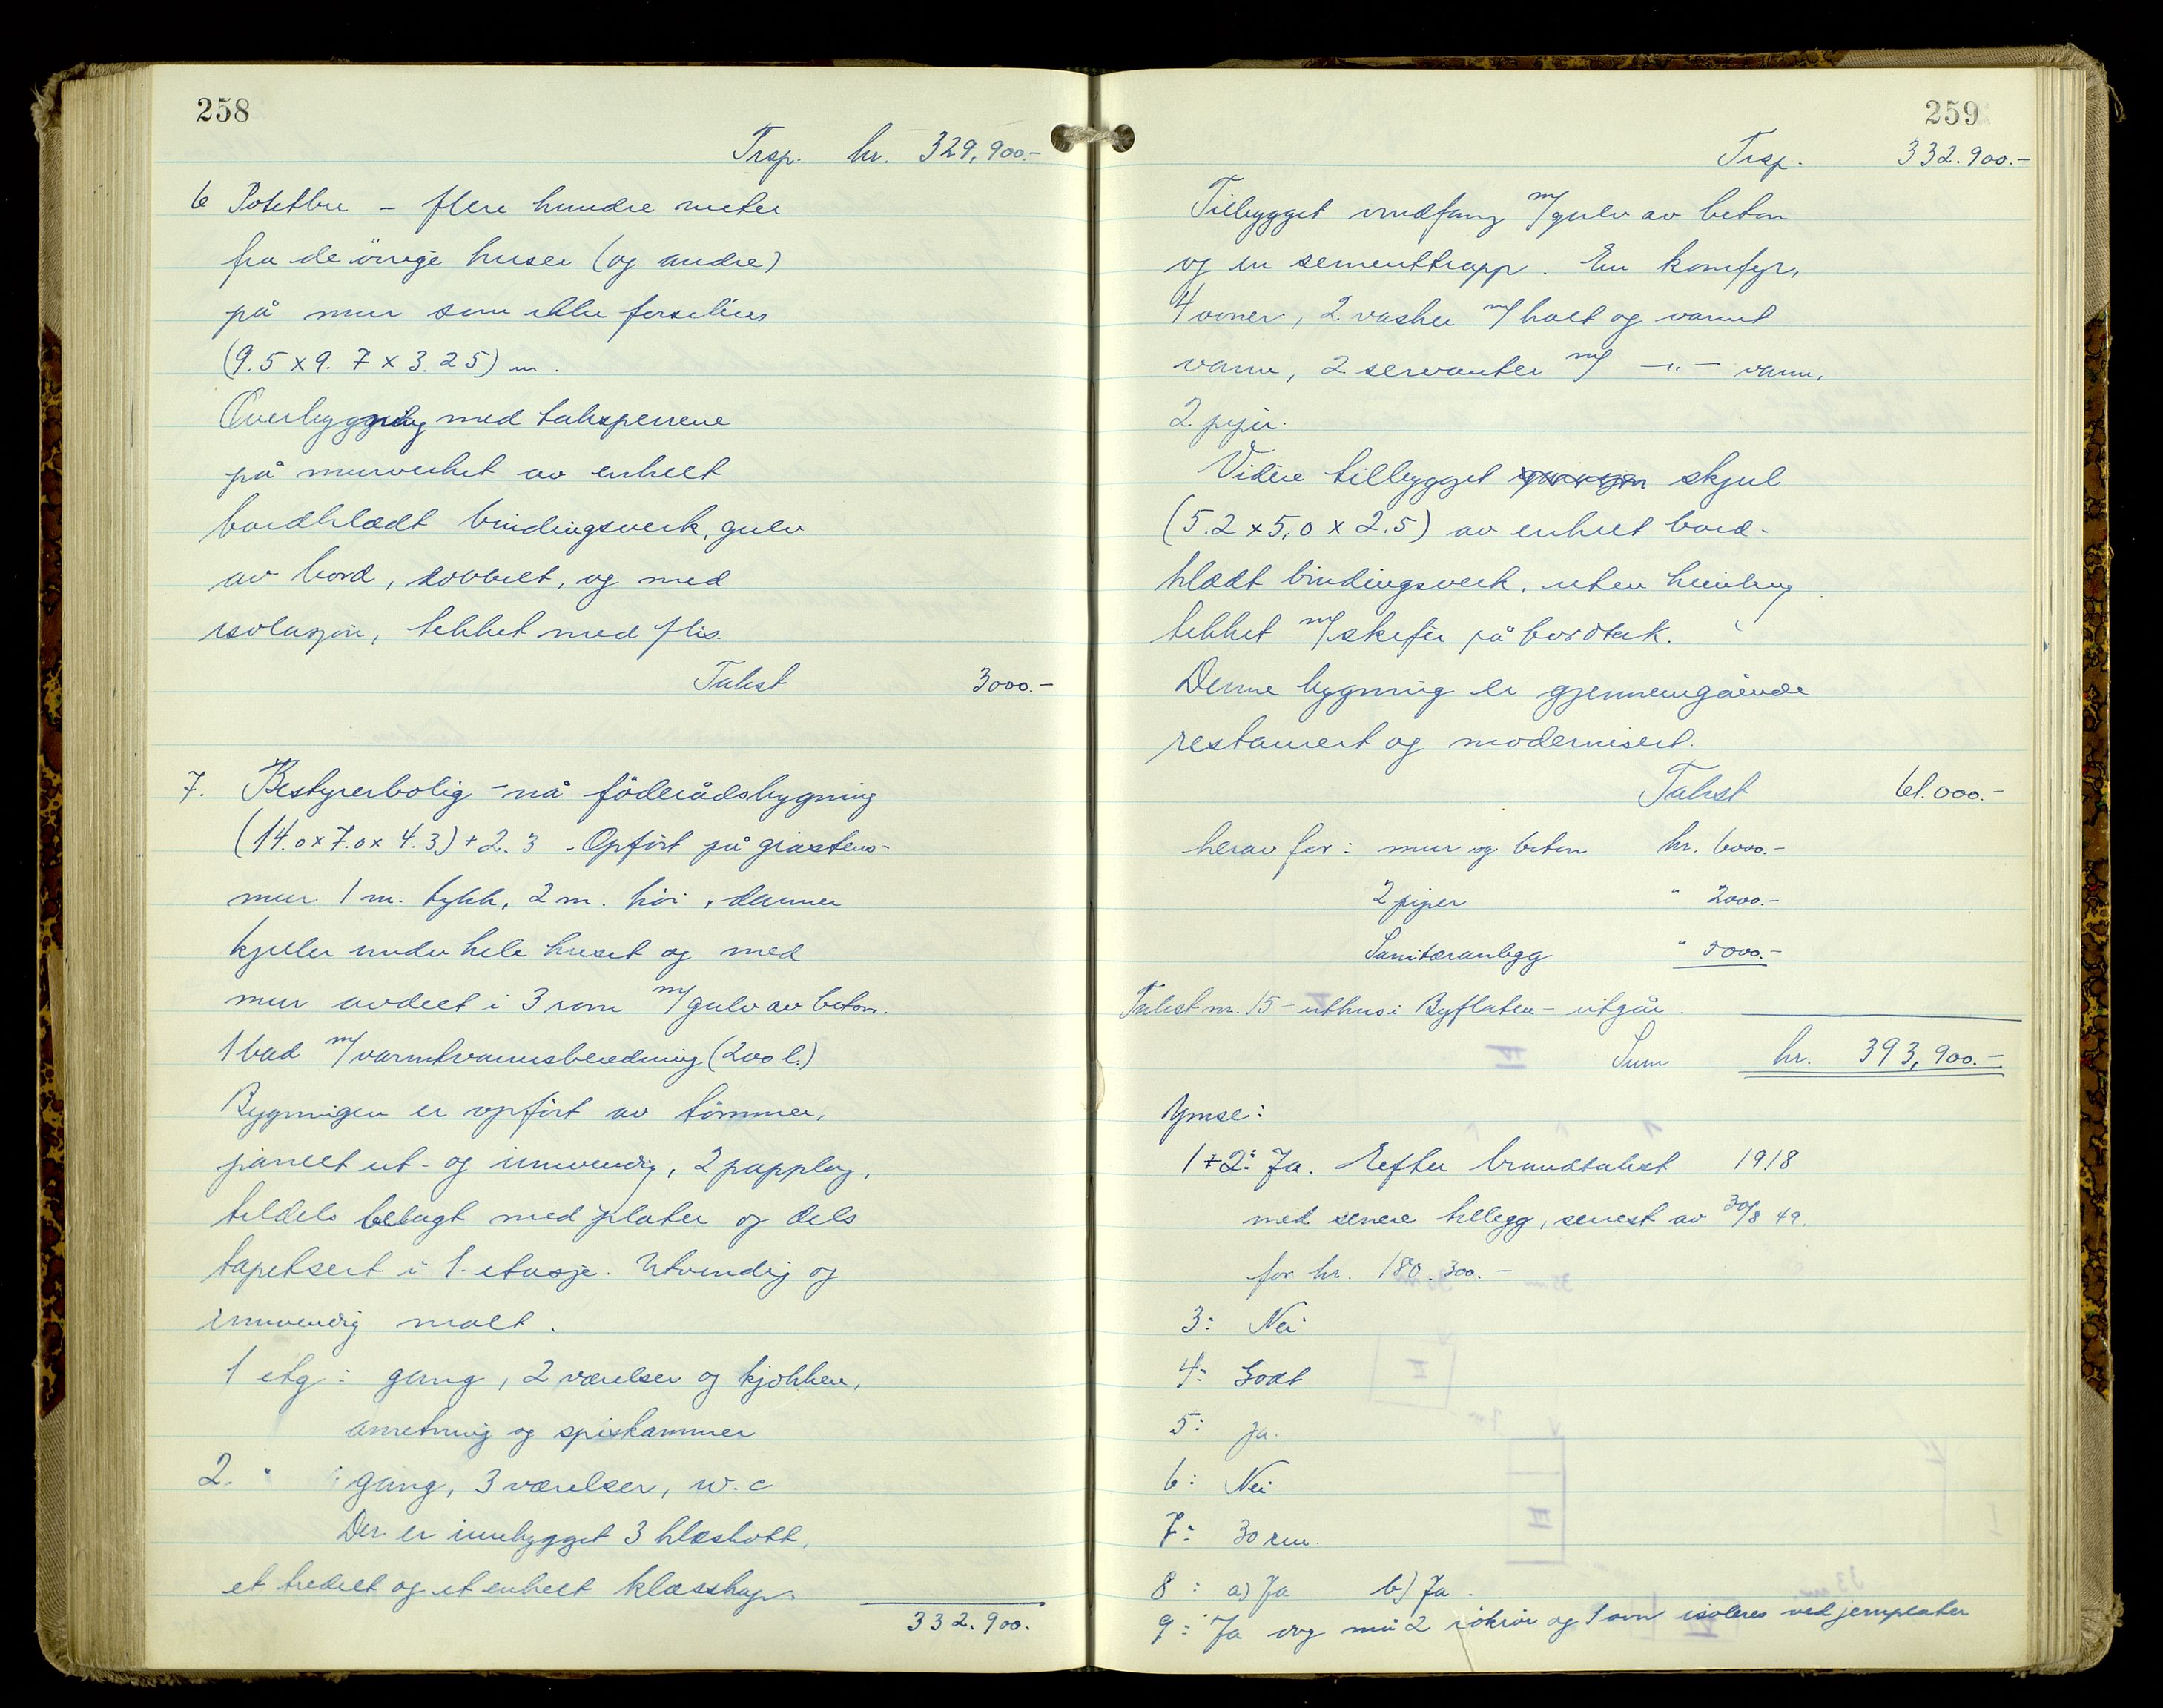 258
Trsp. kr. 329,900.-
6 Potetbu - flere hundre meter
fra de övrige huser (og andre)
på mur som ikke forsikres
(9.5 x 9.7 x 3.25) m.
Overbygning med taksperrene
på murverket av enkelt
bordkledt bindingsverk, gulv
av bord, dobbelt, og med
isolasjon, tekket med flis.
Takst 3000.-
7. Bestyrerbolig - nå föderådsbygning
(14.0 x 7.0 x 4.3) + 2.3 - Opfört på gråstens-
mur 1 m. tykk, 2 m. höi, danner
kjeller under hele huset og med
mur avdelt i 3 rom m/gulv av beton.
1 bad m/varmtvannsberedning (200 l.)
Bygningen er opfört av tömmer,
panelt ut- og innvendig, 2 papplag,
tildels belagt med plater og dels
tapetsert i 1. etasje. Utvendig og
innvendig malt.
1 etg: gang, 2 værelser og kjökken,
anretning og spiskammer
2. " : gang, 3 værelser, w.c
Der er innebygget 3 kleskott,
et tredelt og et enkelt klesskap.
332.900.
259
Trsp. 332.900.-
Tilbygget vindfang m/gulv av beton
og en sementtrapp. En komfyr,
4 ovner, 2 vasker m/kalt og varmt
vann, 2 servanter m/ -"- vann,
2 piper.
Videre tilbygget skjul
(5.2 x 5.0 x 2.5) av enkelt bord-
kledt bindingsverk, uten
tekket m/skifer på bordtak.
Denne bygning er gjennemgående
restaurert og modernisert.
Takst 61.000.-
herav for: mur og beton kr. 6000.-
2 piper " 2000.-
Sanitæranlegg " 5000.-
Takst nr. 15 - uthus i Byflaten - utgår.
Sum kr. 393,900.-
Ymse:
1+2: Ja. Efter brandtakst 1918
med senere tillegg, senest av 30/8 49.
for kr. 180.300.-
3: Nei
4: Godt
5: Ja.
6: Nei
7: 30 cm.
8: a) Ja b) Ja.
9: Ja dog må 2 rökrör og 1 ovn isoleres ved jernplater